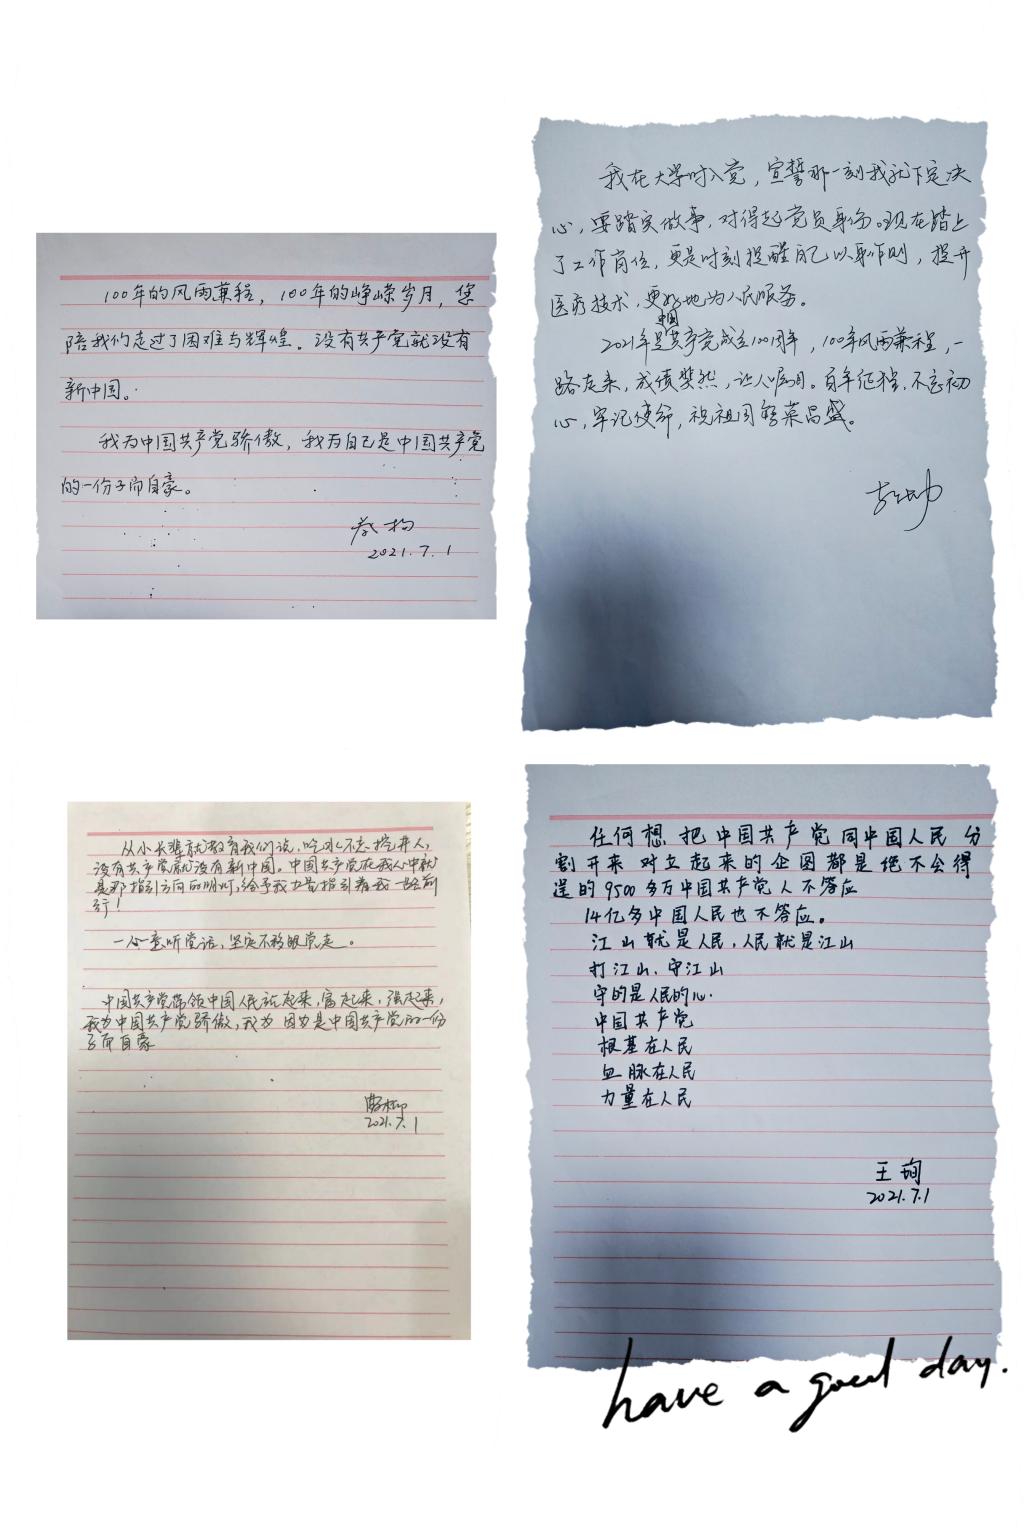 100年的风雨兼程，100年的峥嵘岁月，您
陪我们走过了困难与辉煌。没有共产党就没有
新中国。
我为中国共产党骄傲，我为自己是中国共产党
的一份子而自豪。
2021.7.1
我在大学时入党，宣誓那一刻我就下定决
心，要踏实做事，对得起党员身份。现在踏上
了工作岗位，更是时刻提醒自己以身作则，提升
医疗技术，更好地为人民服务。
2021年是中国共产党成立100周年，100年风雨兼程，一
路走来，成绩斐然，让人瞩目。百年征程，不忘初
心，牢记使命，祝祖国繁荣昌盛。
从小长辈就教育我们说，吃水不忘挖井人，
没有共产党就没有新中国。中国共产党在我心中就
是那指引方向的明灯，给予我力量指引着我一路前
行！
一心一意听党话，坚定不移跟党走。
中国共产党带领中国人民站起来，富起来，强起来，
我为中国共产党骄傲，我为因为是中国共产党的一份
子而自豪
2021.7.1
任何想把中国共产党同中国人民分
割开来对立起来的企图都是绝不会得
逞的9500多万中国共产党人不答应
14亿多中国人民也不答应。
江山就是人民，人民就是江山
打江山、守江山
守的是人民的心.
中国共产党
根基在人民
血脉在人民
力量在人民
王珣
2021.7.1
have a good day.